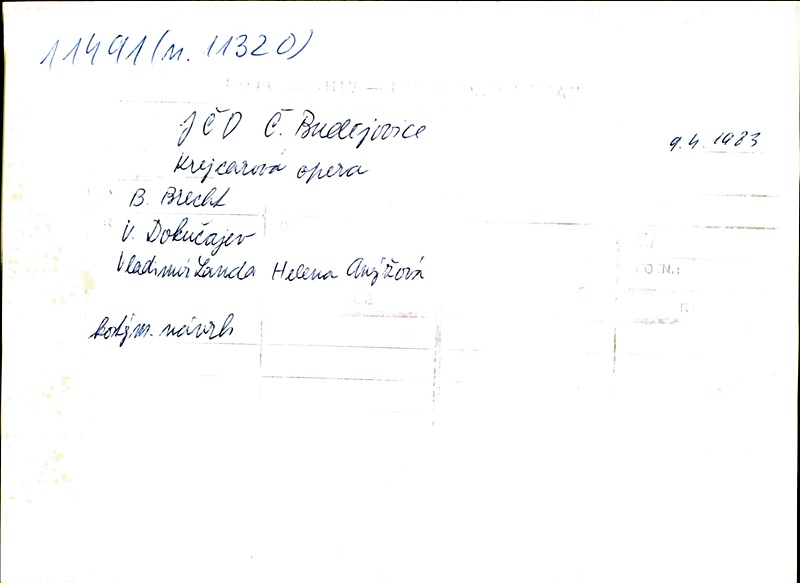 11491 (n. 11320)
JČD Č. Budějovice
9.4.1983
Krejcarová opera
B. Brecht
V. Dokučajev
Vladimír Landa Helena Anýžová
kostým. návrh